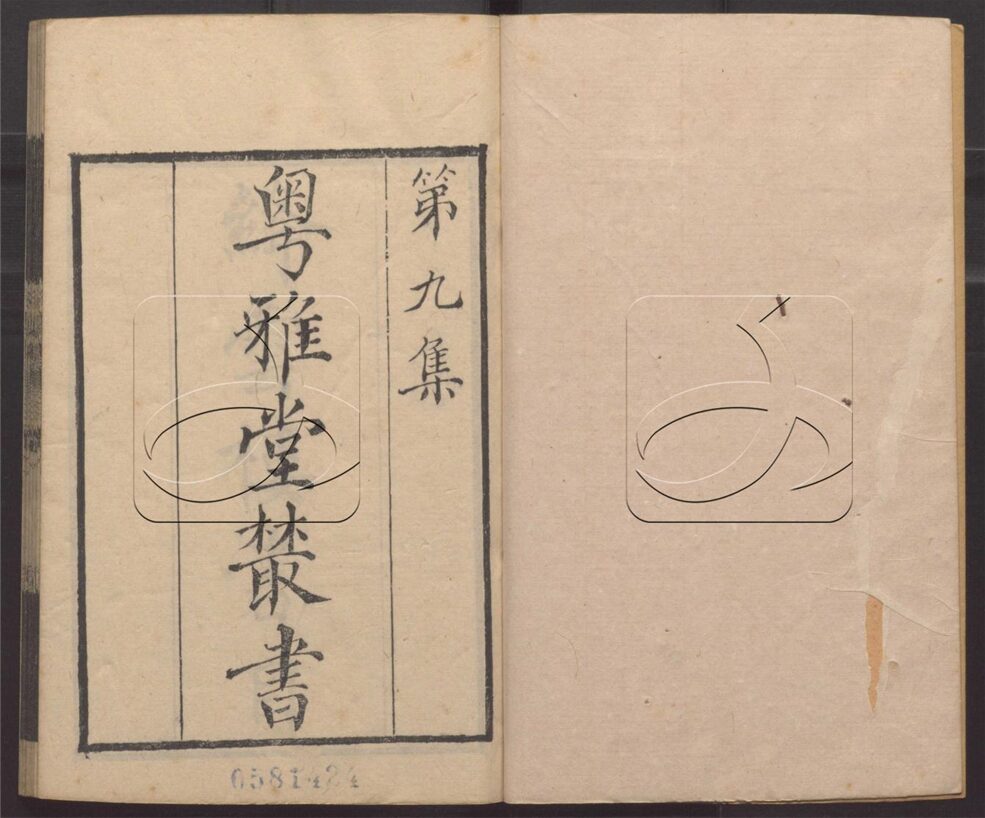 第九集
粵雅堂叢書
0581424